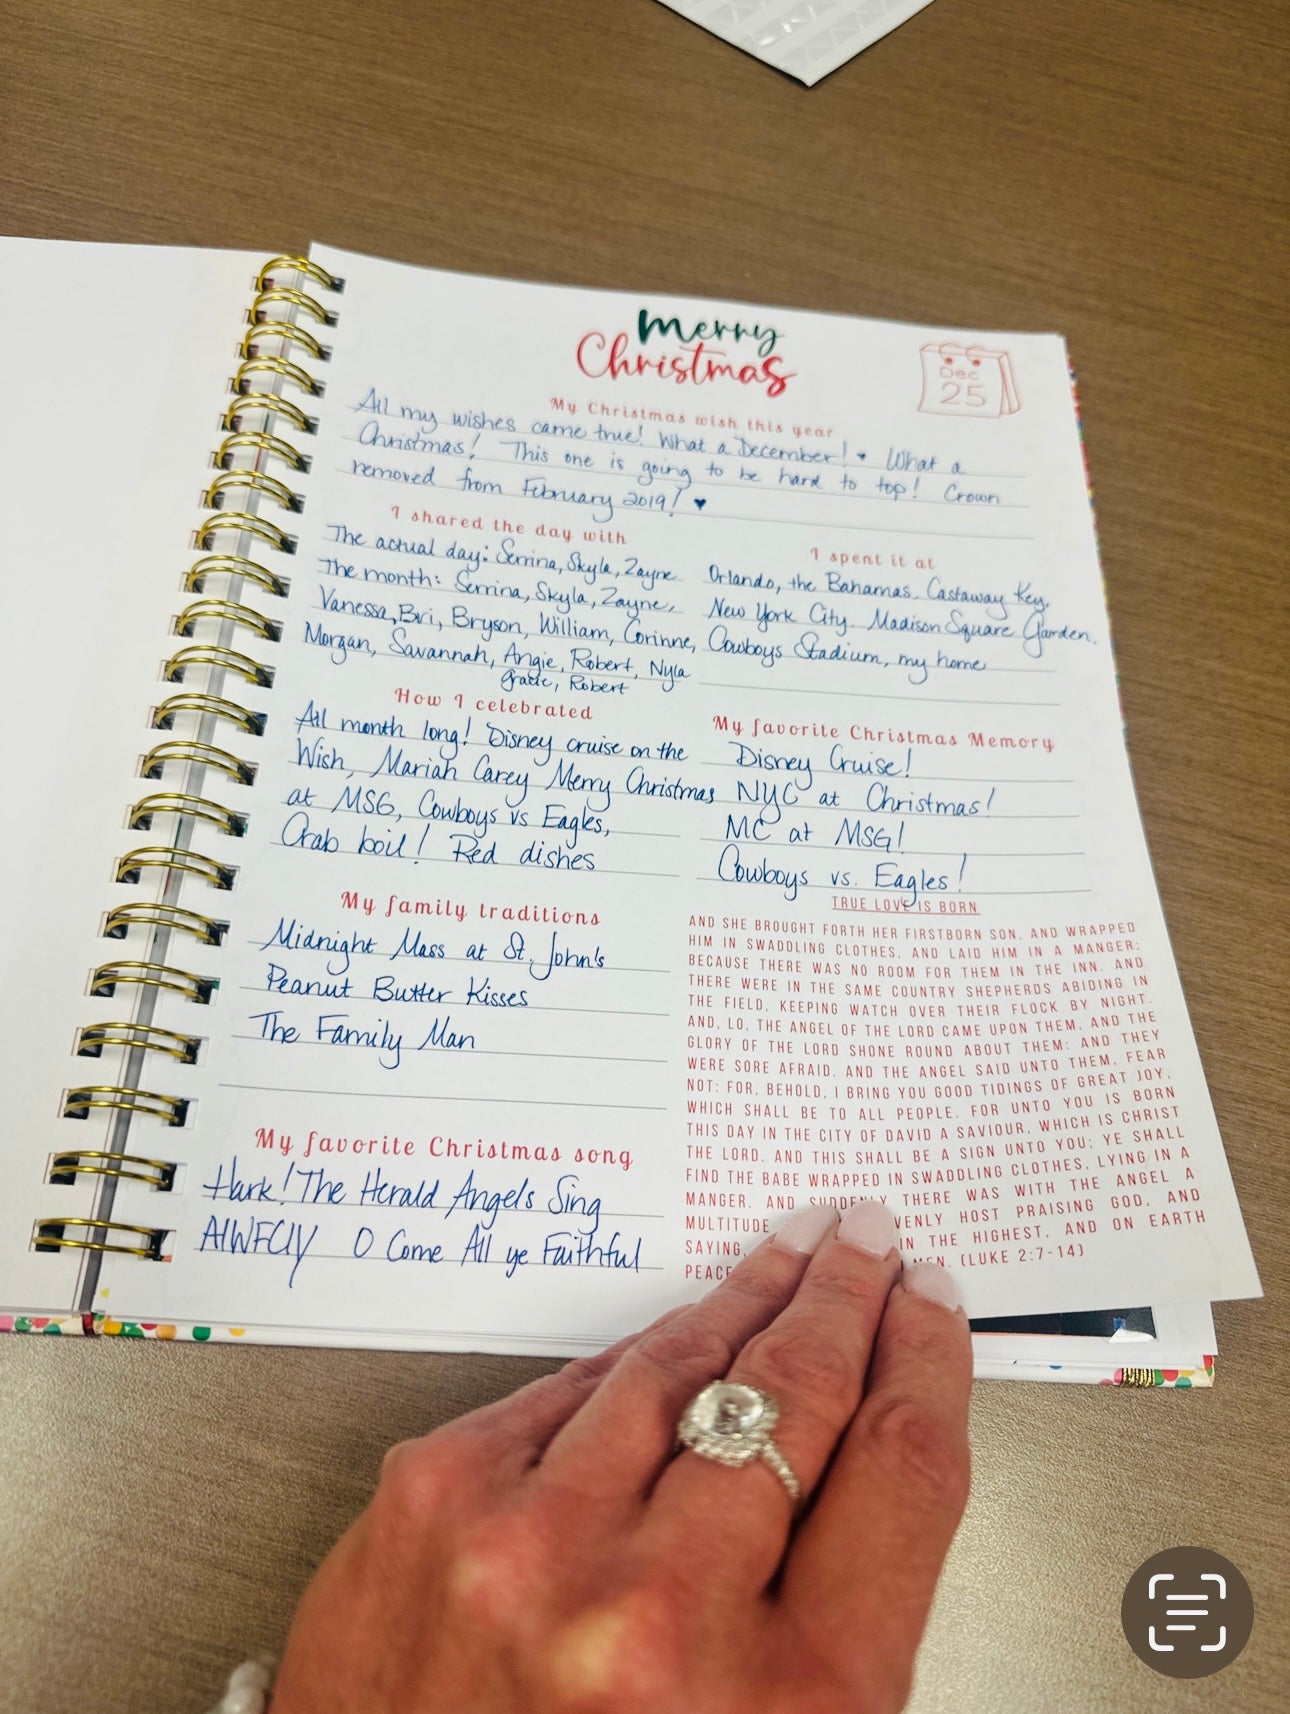 Merry
Christmas
Dec
25
My Christmas wish this year
All my wishes came true! What a December! ♥ What a
Christmas! This one is going to be hard to top! Crown
removed from February 2019! ♥
I shared the day with
The actual day: Serrina, Skyla, Zayne
The month: Serrina, Skyla, Zayne,
Vanessa, Bri, Bryson, William, Corinne,
Morgan, Savannah, Angie, Robert, Nyla
Gracie, Robert
I spent it at
Orlando, the Bahamas. Castaway Key.
New York City. Madison Square Garden.
Cowboys Stadium, my home
How I celebrated
All month long! Disney cruise on the
Wish, Mariah Carey Merry Christmas
at MSG, Cowboys vs Eagles,
Crab boil! Red dishes
My favorite Christmas Memory
Disney Cruise!
NYC at Christmas!
MC at MSG!
Cowboys vs. Eagles!
My family traditions
Midnight Mass at St. John's
Peanut Butter Kisses
The Family Man
My favorite Christmas song
Hark! The Herald Angels Sing
AIWFCIY O Come All ye Faithful
TRUE LOVE IS BORN
AND SHE BROUGHT FORTH HER FIRSTBORN SON, AND WRAPPED
HIM IN SWADDLING CLOTHES, AND LAID HIM IN A MANGER;
BECAUSE THERE WAS NO ROOM FOR THEM IN THE INN. AND
THERE WERE IN THE SAME COUNTRY SHEPHERDS ABIDING IN
THE FIELD, KEEPING WATCH OVER THEIR FLOCK BY NIGHT.
AND, LO, THE ANGEL OF THE LORD CAME UPON THEM, AND THE
GLORY OF THE LORD SHONE ROUND ABOUT THEM: AND THEY
WERE SORE AFRAID. AND THE ANGEL SAID UNTO THEM, FEAR
NOT: FOR, BEHOLD, I BRING YOU GOOD TIDINGS OF GREAT JOY,
WHICH SHALL BE TO ALL PEOPLE. FOR UNTO YOU IS BORN
THIS DAY IN THE CITY OF DAVID A SAVIOUR, WHICH IS CHRIST
THE LORD. AND THIS SHALL BE A SIGN UNTO YOU; YE SHALL
FIND THE BABE WRAPPED IN SWADDLING CLOTHES, LYING IN A
MANGER. AND SUDDENLY THERE WAS WITH THE ANGEL A
MULTITUDE VENLY HOST PRAISING GOD, AND
SAYING, IN THE HIGHEST, AND ON EARTH
PEACE MEN. (LUKE 2:7-14)